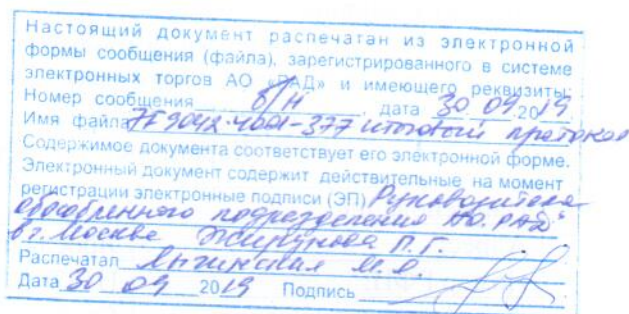 Настоящий документ распечатан из электронной
формы сообщения (файла), зарегистрированного в системе
электронных торгов АО «РАД» и имеющего реквизиты:
Номер сообщения б/н дата 30 09 2019
Имя файла итоговый протокол
Содержимое документа соответствует его электронной форме.
Электронный документ содержит действительные на момент
регистрации электронные подписи (ЭП) Руководителя
обособленного подразделения АО "РАД"
в г. Москве П.Г.
Распечатал М.О.
Дата 30 09 2019 Подпись